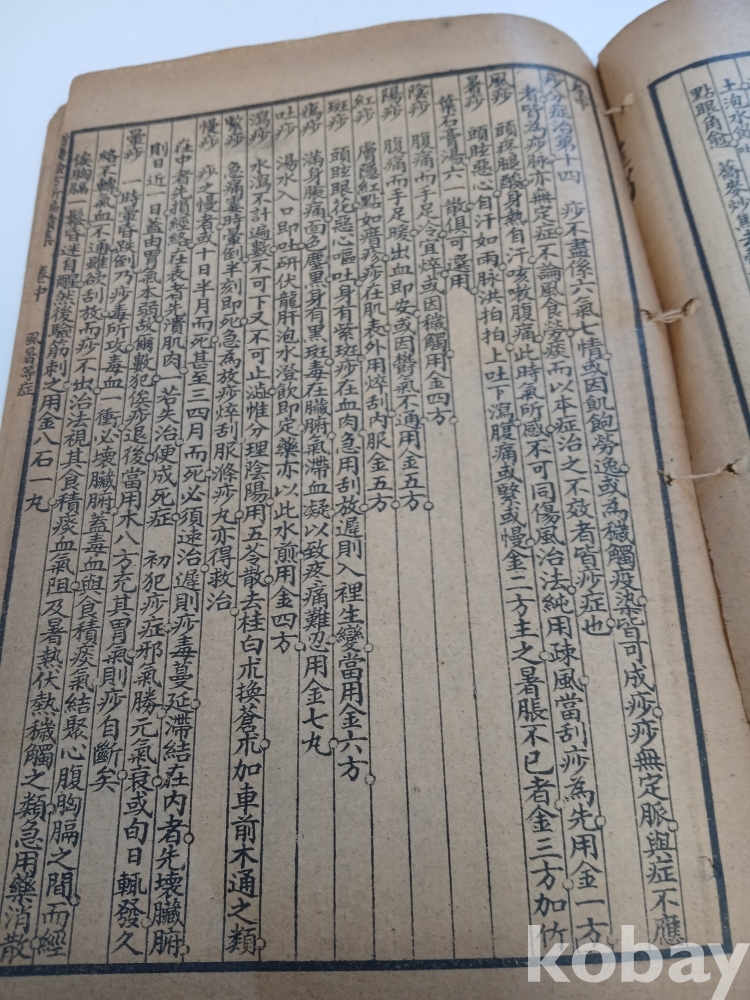 土泡水飲
點眼角愈
痧分症治第十四　痧不盡係六氣七情或因飢飽勞逸或為穢觸疫染皆可成痧痧無定脈與症不應
者皆為痧脉亦無定症不論風食勞痰而以本症治之不效者皆痧症也
風痧　頭疼腿酸身熱自汗咳嗽腹痛此時氣所感不可同傷風治法純用疎風當刮痧為先用金一方
暑痧　頭眩惡心自汗如雨脉洪拍拍上吐下瀉腹痛或緊或慢金二方主之暑脹不已者金三方加竹
葉石膏湯六一散俱可選用
陰痧　腹痛而手足人令宜焠或因穢觸用金四方
陽痧　腹痛而手足暖出血即安或因鬱氣不通用金五方
紅痧　膚隱紅點如瘄疹痧在肌表外用焠刮內服金五方
斑痧　頭眩眼花惡心嘔吐身有紫斑痧在血肉急用刮放遲則入裡生變當用金六方
瘍痧　滿身脹痛面色黧黑身有黑斑毒在臟腑氣滯血凝以致疼痛難忍用金七丸
吐痧　湯水入口即吐研伏龍肝泡水澄飲即定藥亦以此水煎用金四方
瀉痧　水瀉不計遍數不可下又不可止澁惟分理陰陽用五苓散去桂白朮換蒼朮加車前木通之類
緊痧　急痛霎時暈倒半刻即死急為放痧焠刮服滌痧丸亦得救治
慢痧　痧之慢者或十日半月而死甚至三四月而死必須速治遲則痧毒蔓延滯結在內者先壞臟腑
在中者先損經絡在表者先潰肌肉　若失治便成死症　初犯痧症邪氣勝元氣衰或旬日輒發久
則日近一日蓋由胃氣本弱故爾數犯俟痧退後當用木八方充其胃氣則痧自斷矣
暈痧　一時暈昏跌倒乃痧毒所攻毒血一衝必壞臟腑蓋毒血與食積痰氣結聚心腹胸膈之間而經
絡不轉氣血不通雖欲刮放而痧不出治法視其食積痰血氣阻及暑熱伏熱穢觸之類急用藥消散
俟胸膈一鬆昏迷自醒然後驗筋刺之用金八石一丸
卷中　風暑等症
kobay